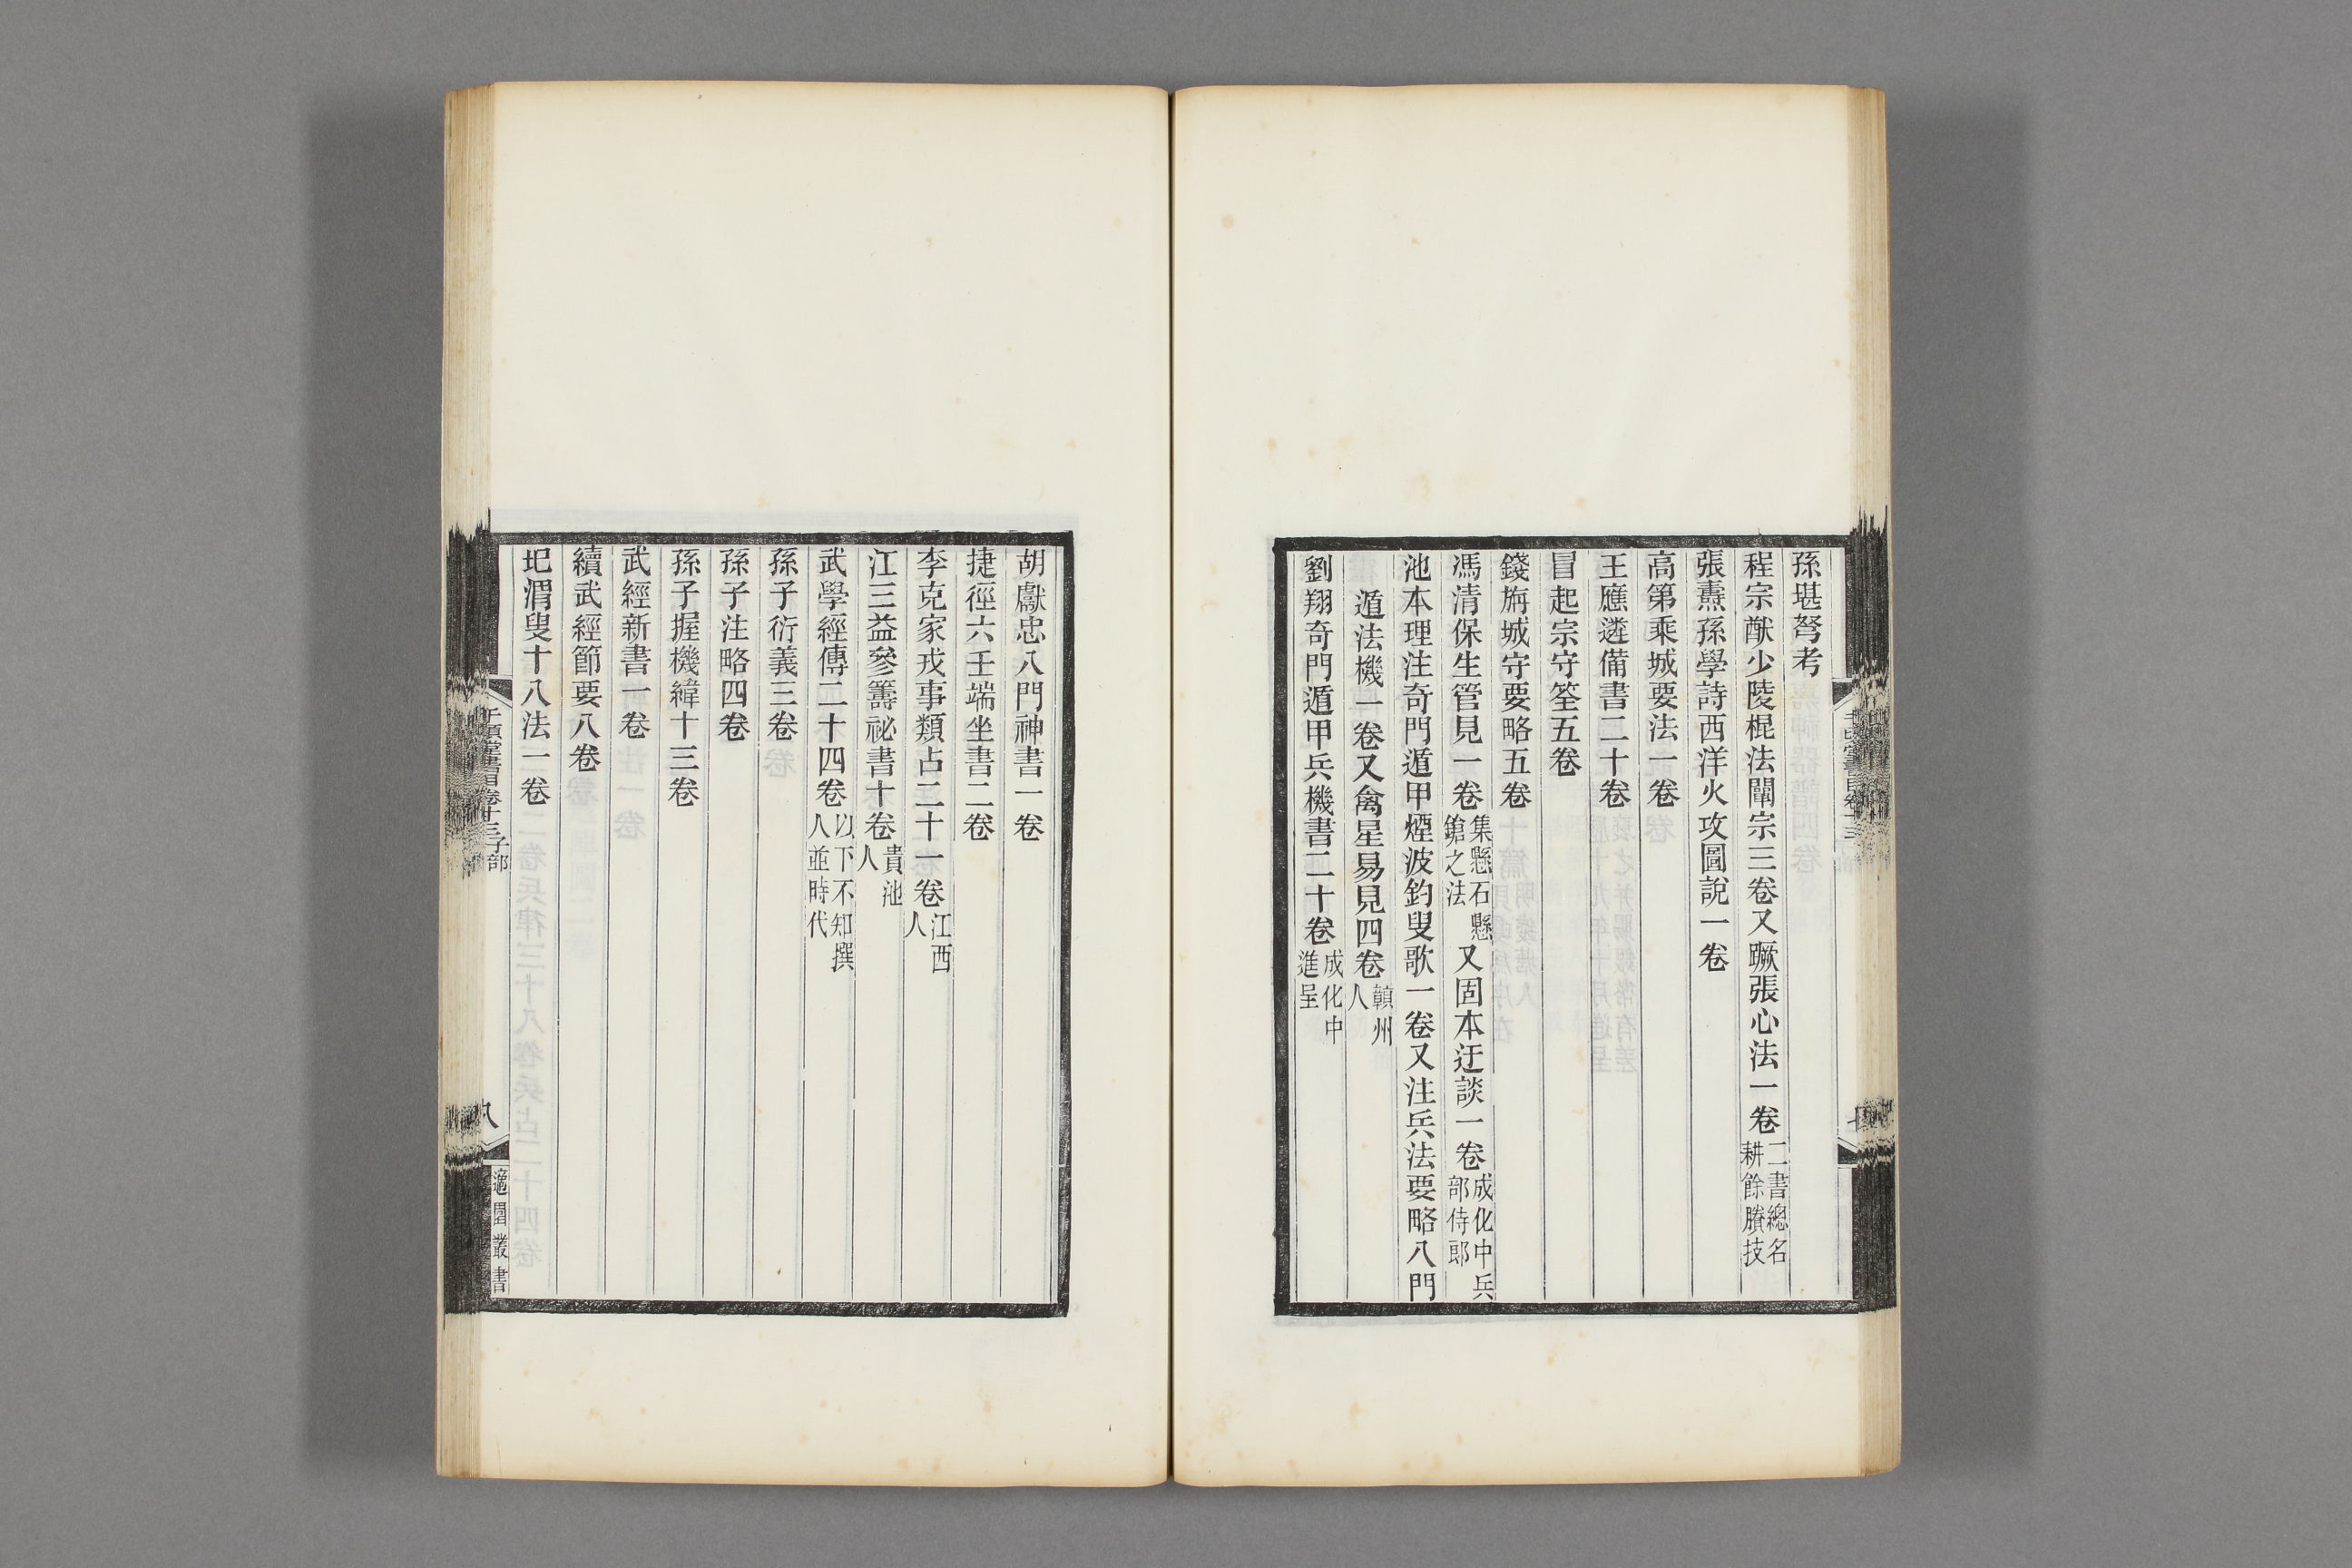 孫堪弩考
程宗猷少陵棍法闡宗三卷又蹶張心法一卷二書總名耕餘賸技
張燾孫學詩西洋火攻圖說一卷
高第乘城要法一卷
王應遴備書二十卷
冒起宗守筌五卷
錢旃城守要略五卷
馮清保生管見一卷集懸石懸鎗之法又固本迂談一卷成化中兵部侍郎
池本理注奇門遁甲煙波釣叟歌一卷又注兵法要略八門
遁法機一卷又禽星易見四卷贑州人
劉翔奇門遁甲兵機書二十卷成化中進呈
胡獻忠八門神書一卷
捷徑六壬端坐書二卷
李克家戎事類占二十一卷江西人
江三益參籌祕書十卷貴池人
武學經傳二十四卷以下不知撰人並時代
孫子衍義三卷
孫子注略四卷
孫子握機緯十三卷
武經新書一卷
續武經節要八卷
圯渭叟十八法一卷
千頃堂書目卷十三子部
八
適園叢書